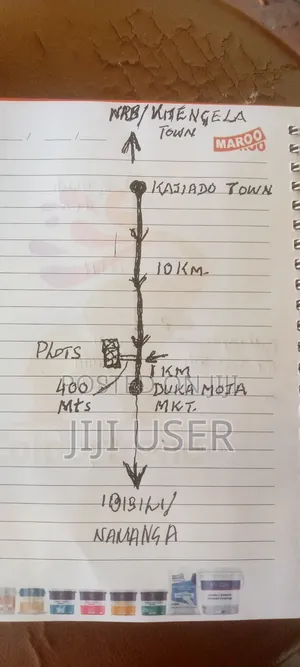 NRB/KITENGELA
TOWN
MAROO
KAJIADO TOWN
10KM
PLOTS
1KM
400
Mts
DUKA MOJA
MKT.
POSTED ON JIJI
JIJI USER
NAMANGA